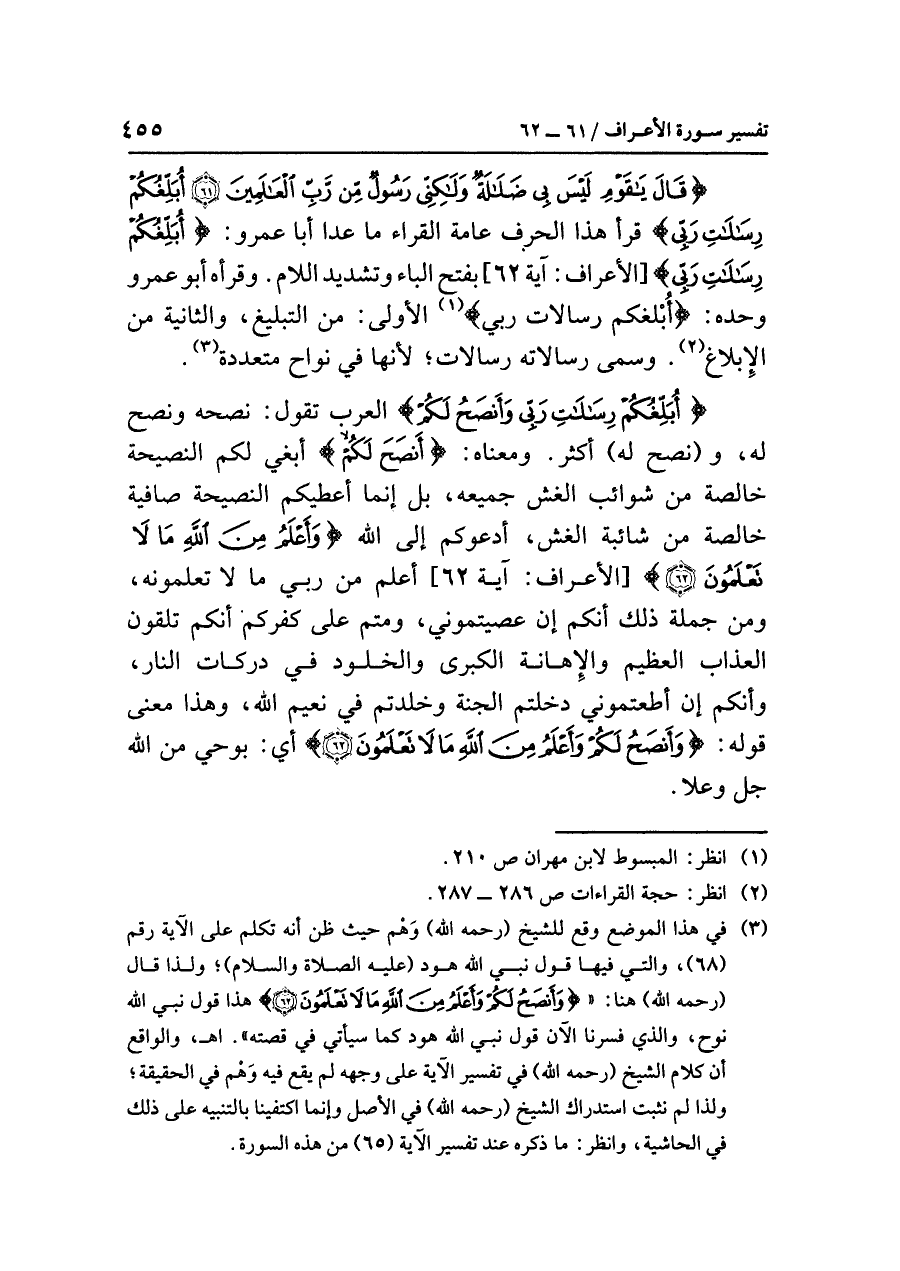 تفسير سورة الأعراف / ٦١ ـ ٦٢ ٤٥٥
﴿ قَالَ يَٰقَوْمِ لَيْسَ بِى ضَلَٰلَةٌ وَلَٰكِنِّى رَسُولٌ مِّن رَّبِّ ٱلْعَٰلَمِينَ ٦١ أُبَلِّغُكُمْ
رِسَٰلَٰتِ رَبِّى﴾ قرأ هذا الحرف عامة القراء ما عدا أبا عمرو: ﴿ أُبَلِّغُكُمْ
رِسَٰلَٰتِ رَبِّى﴾ [الأعراف: آية ٦٢] بفتح الباء وتشديد اللام. وقرأه أبو عمرو
وحده: ﴿أُبْلغكم رسالات ربي﴾(١) الأولى: من التبليغ، والثانية من
الإبلاغ(٢). وسمى رسالاته رسالات؛ لأنها في نواح متعددة(٣).
﴿ أُبَلِّغُكُمْ رِسَٰلَٰتِ رَبِّى وَأَنصَحُ لَكُمْ﴾ العرب تقول: نصحه ونصح
له، و (نصح له) أكثر. ومعناه: ﴿ أَنصَحَ لَكُمْ ﴾ أبغي لكم النصيحة
خالصة من شوائب الغش جميعه، بل إنما أعطيكم النصيحة صافية
خالصة من شائبة الغش، أدعوكم إلى الله ﴿ وَأَعْلَمُ مِنَ ٱللَّهِ مَا لَا
تَعْلَمُونَ ٦٢ ﴾ [الأعراف: آية ٦٢] أعلم من ربي ما لا تعلمونه،
ومن جملة ذلك أنكم إن عصيتموني، ومتم على كفركم أنكم تلقون
العذاب العظيم والإهانة الكبرى والخلود في دركات النار،
وأنكم إن أطعتموني دخلتم الجنة وخلدتم في نعيم الله، وهذا معنى
قوله: ﴿ وَأَنصَحُ لَكُمْ وَأَعْلَمُ مِنَ ٱللَّهِ مَا لَا تَعْلَمُونَ ٦٢﴾ أي: بوحي من الله
جل وعلا.
(١) انظر: المبسوط لابن مهران ص ٢١٠.
(٢) انظر: حجة القراءات ص ٢٨٦ ـ ٢٨٧.
(٣) في هذا الموضع وقع للشيخ (رحمه الله) وَهْم حيث ظن أنه تكلم على الآية رقم
(٦٨)، والتي فيها قول نبي الله هود (عليه الصلاة والسلام)؛ ولذا قال
(رحمه الله) هنا: «﴿ وَأَنصَحُ لَكُمْ وَأَعْلَمُ مِنَ ٱللَّهِ مَا لَا تَعْلَمُونَ ٦٢﴾ هذا قول نبي الله
نوح، والذي فسرنا الآن قول نبي الله هود كما سيأتي في قصته». اهـ، والواقع
أن كلام الشيخ (رحمه الله) في تفسير الآية على وجهه لم يقع فيه وَهْم في الحقيقة؛
ولذا لم نثبت استدراك الشيخ (رحمه الله) في الأصل وإنما اكتفينا بالتنبيه على ذلك
في الحاشية، وانظر: ما ذكره عند تفسير الآية (٦٥) من هذه السورة.